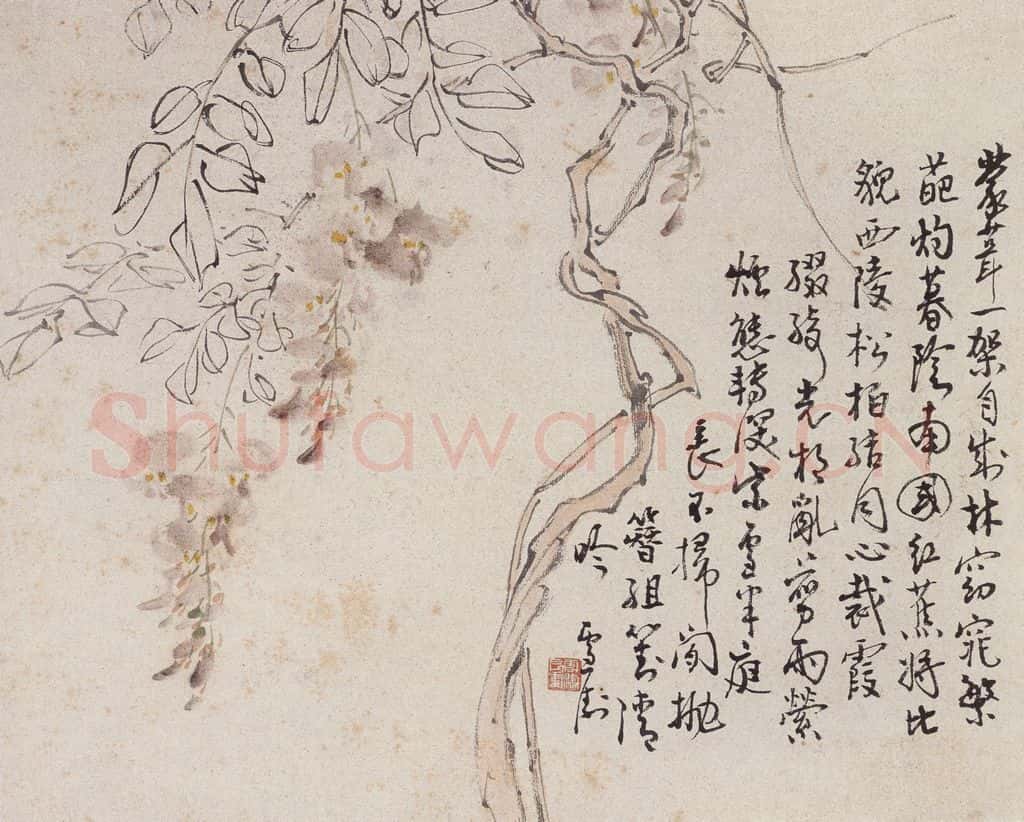 蒙茸一架自成林窈窕繁
葩灼暮陰南國紅蕉將比
貌西陵松柏結同心裁霞
綴綺光相亂剪雨縈
煙態轉深紫雪半庭
長不掃閒拋
簪組對清
吟 雪居
Shufawang.CN